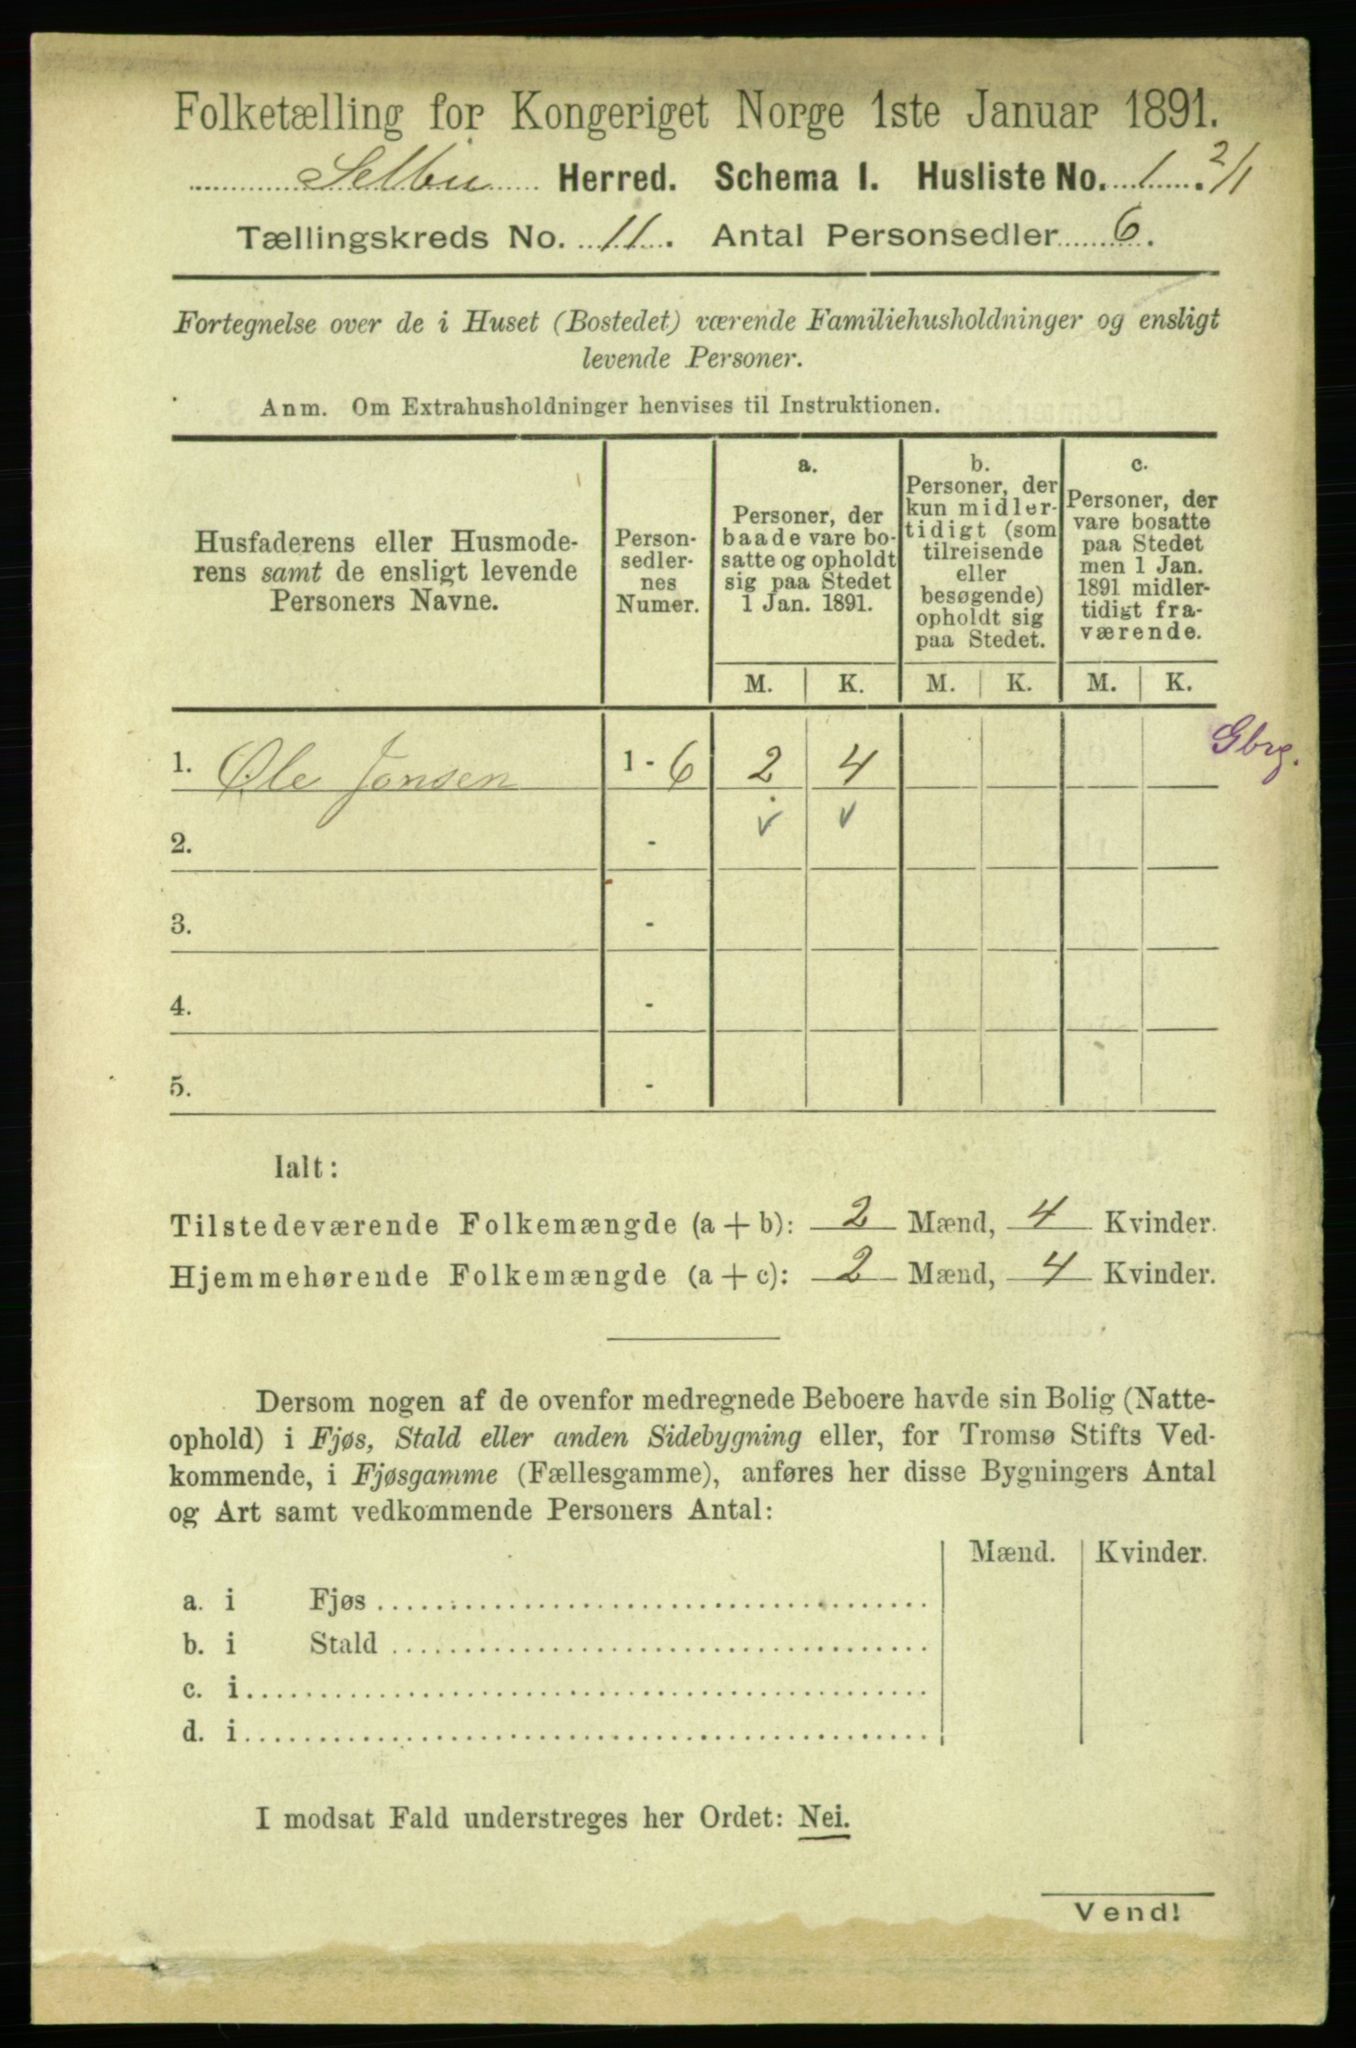 Folketælling for Kongeriget Norge 1ste Januar 1891.
Selbu Herred. Schema I. Husliste No. 1. 2/1
Tællingskreds No. 11. Antal Personsedler 6.
Fortegnelse over de i Huset (Bostedet) værende Familiehusholdninger og ensligt
levende Personer.
Anm. Om Extrahusholdninger henvises til Instruktionen.
Husfaderens eller Husmode-
rens samt de ensligt levende
Personers Navne.
Person-
sedler-
nes
Numer.
a.
Personer, der
baade vare bo-
satte og opholdt
sig paa Stedet
1 Jan. 1891.
b.
Personer, der
kun midler-
tidigt (som
tilreisende
eller
besøgende)
opholdt sig
paa Stedet.
c.
Personer, der
vare bosatte
paa Stedet
men 1 Jan.
1891 midler-
tidigt fra-
værende.
M. K. M. K. M. K.
1. Ole Jonsen 1 - 6 2 4 Gbrg.
2. - v v
3. -
4. -
5. -
Ialt:
Tilstedeværende Folkemængde (a + b): 2 Mænd, 4 Kvinder.
Hjemmehørende Folkemængde (a + c): 2 Mænd, 4 Kvinder.
Dersom nogen af de ovenfor medregnede Beboere havde sin Bolig (Natte-
ophold) i Fjøs, Stald eller anden Sidebygning eller, for Tromsø Stifts Ved-
kommende, i Fjøsgamme (Fællesgamme), anføres her disse Bygningers Antal
og Art samt vedkommende Personers Antal:
Mænd. Kvinder.
a. i Fjøs
b. i Stald
c. i
d. i
I modsat Fald understreges her Ordet: Nei.
Vend!